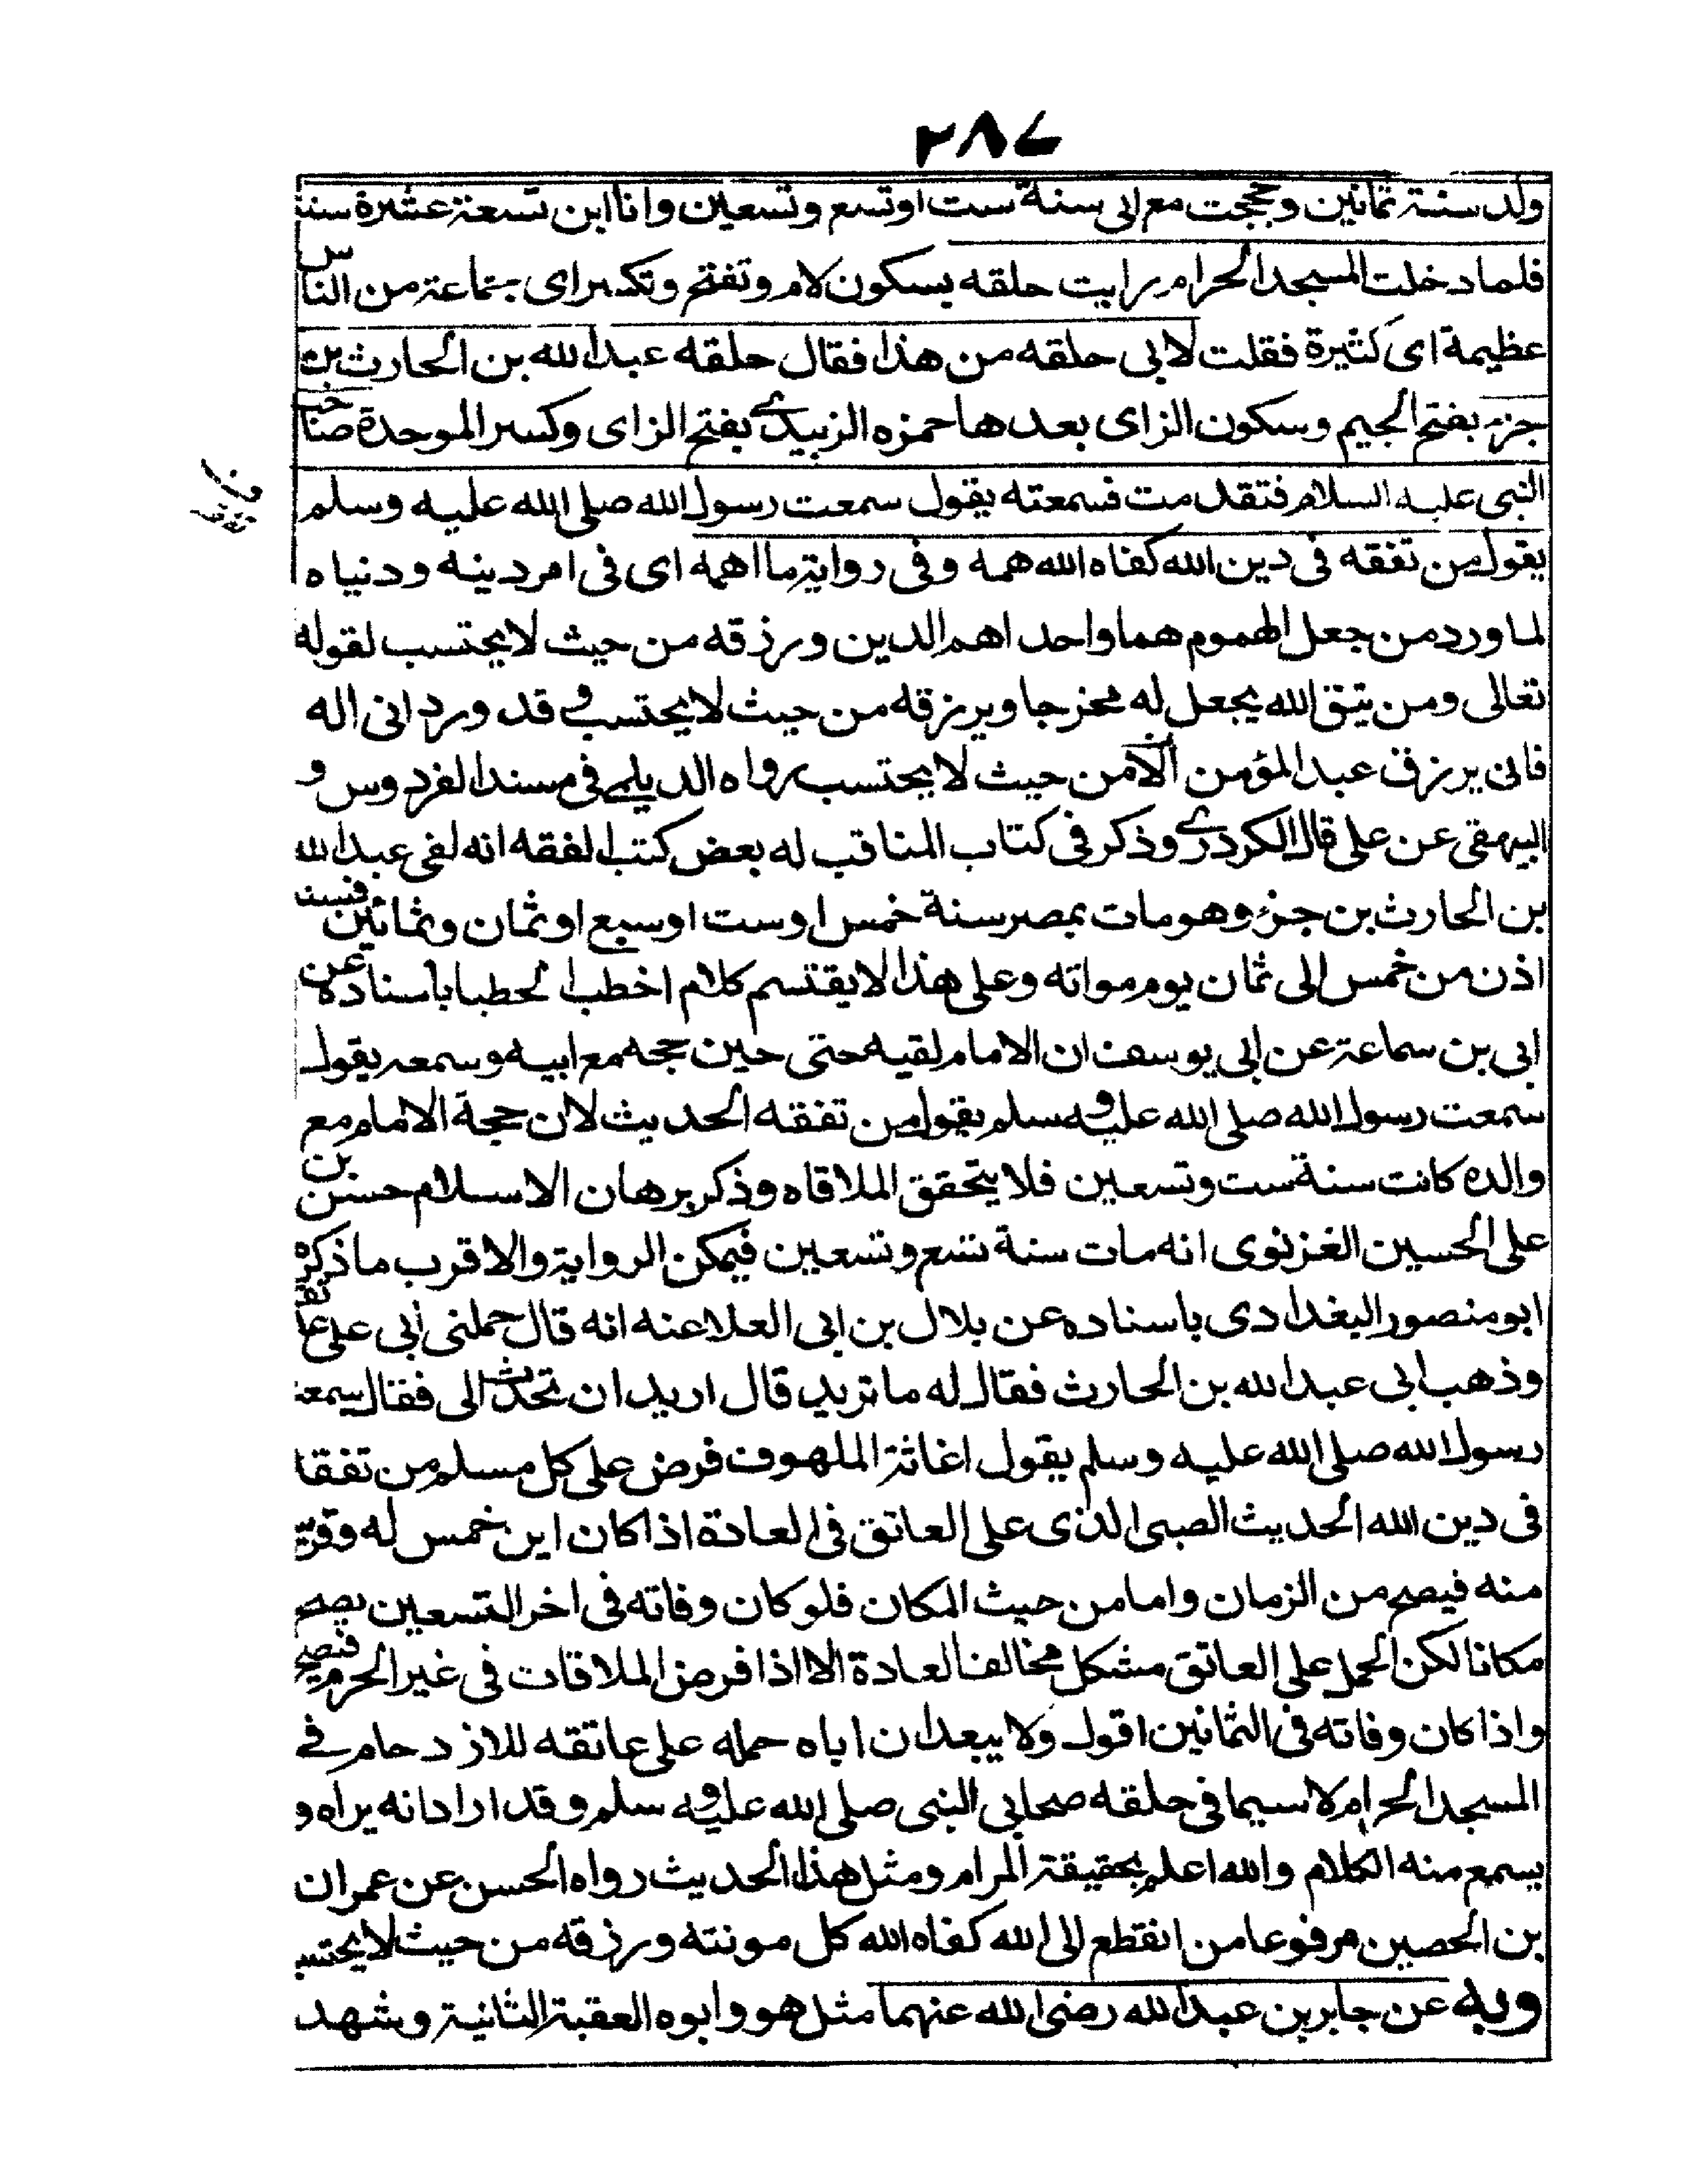 ٢٨٧
ولد سنة ثمانين وحججت مع ابى سنة ست اوتسع وتسعين وانا ابن تسعة عشرة سنة
فلما دخلت المسجد الحرام رايت حلقه بسكون لام وتفتح وتكسر اى جماعة من الناس
عظيمة اى كثيرة فقلت لابى حلقه من هذا فقال حلقه عبد الله بن الحارث بن
جزء بفتح الجيم وسكون الزاى بعدها حمزه الزبيدى بفتح الزاى وكسر الموحدة صاحب
النبى عليه السلام فتقدمت فسمعته يقول سمعت رسول الله صلى الله عليه وسلم
يقول من تفقه فى دين الله كفاه الله همه وفى رواية ما اهمه اى فى امر دينه ودنياه
لما ورد من جعل الهموم هما واحد اهم الدين ورزقه من حيث لا يحتسب لقوله
تعالى ومن يتق الله يجعل له مخرجا ويرزقه من حيث لا يحتسب و قد ورد انى اله
فانى يرزق عبد المؤمن الا من حيث لا يحتسب رواه الديلمى فى مسند الفردوس و
البيهقى عن على قال الكردرى وذكر فى كتاب المناقب له بعض كتب الفقه انه لقى عبد الله
بن الحارث بن جزء وهو مات بمصر سنة خمس او ست او سبع او ثمان وثمانين فنسنه
اذن من خمس الى ثمان يوم مواته وعلى هذا لا يقتسم كلام اخطب الخطبا باسناده عن
ابى بن سماعة عن ابى يوسف ان الامام لقيه حتى حين حجه مع ابيه وسمعه يقول
سمعت رسول الله صلى الله عليه و سلم يقول من تفقه الحديث لان حجة الامام مع
والده كانت سنة ست وتسعين فلا يتحقق الملاقاه وذكر برهان الاسلام حسن بن
على الحسين الغزنوى انه مات سنة تسع وتسعين فيمكن الرواية والاقرب ما ذكره
ابو منصور البغدادى باسناده عن بلال بن ابى العلا عنه انه قال حملنى ابى على عاتقه
وذهب ابى عبد الله بن الحارث فقال له ما تريد قال اريد ان تحدث الى فقال سمعت
رسول الله صلى الله عليه وسلم يقول اغاثة الملهوف فرض على كل مسلم من تفقا
فى دين الله الحديث الصبى الذى على العاتق فى العادة اذا كان ابن خمس له وقريب
منه فيصح من الزمان واما من حيث المكان فلو كان وفاته فى اخر التسعين يصح
مكانا لكن الحمل على العاتق مشكل مخالف العادة الا اذا فرض الملاقات فى غير الحرم فيصح
واذا كان وفاته فى الثمانين اقول ولا يبعد ان اباه حمله على عاتقه للازدحام فى
المسجد الحرام لا سيما فى حلقه صحابى النبى صلى الله عليه و سلم وقد اراد انه يراه و
يسمع منه الكلام والله اعلم بحقيقة المرام ومثل هذا الحديث رواه الحسن عن عمران
بن الحصين مرفوعا من انقطع الى الله كفاه الله كل مونته ورزقه من حيث لا يحتسب
وبه عن جابر بن عبد الله رضى الله عنهما مثل هو وابوه العقبة الثانية وشهد